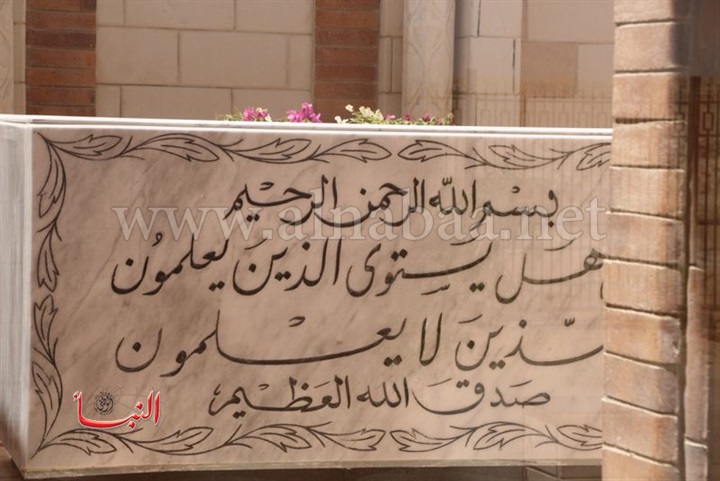 بسم الله الرحمن الرحيم
هل يستوى الذين يعلمون
ـذين لا يعلمون
صدق الله العظيم
www.alnabaa.net
النبأ